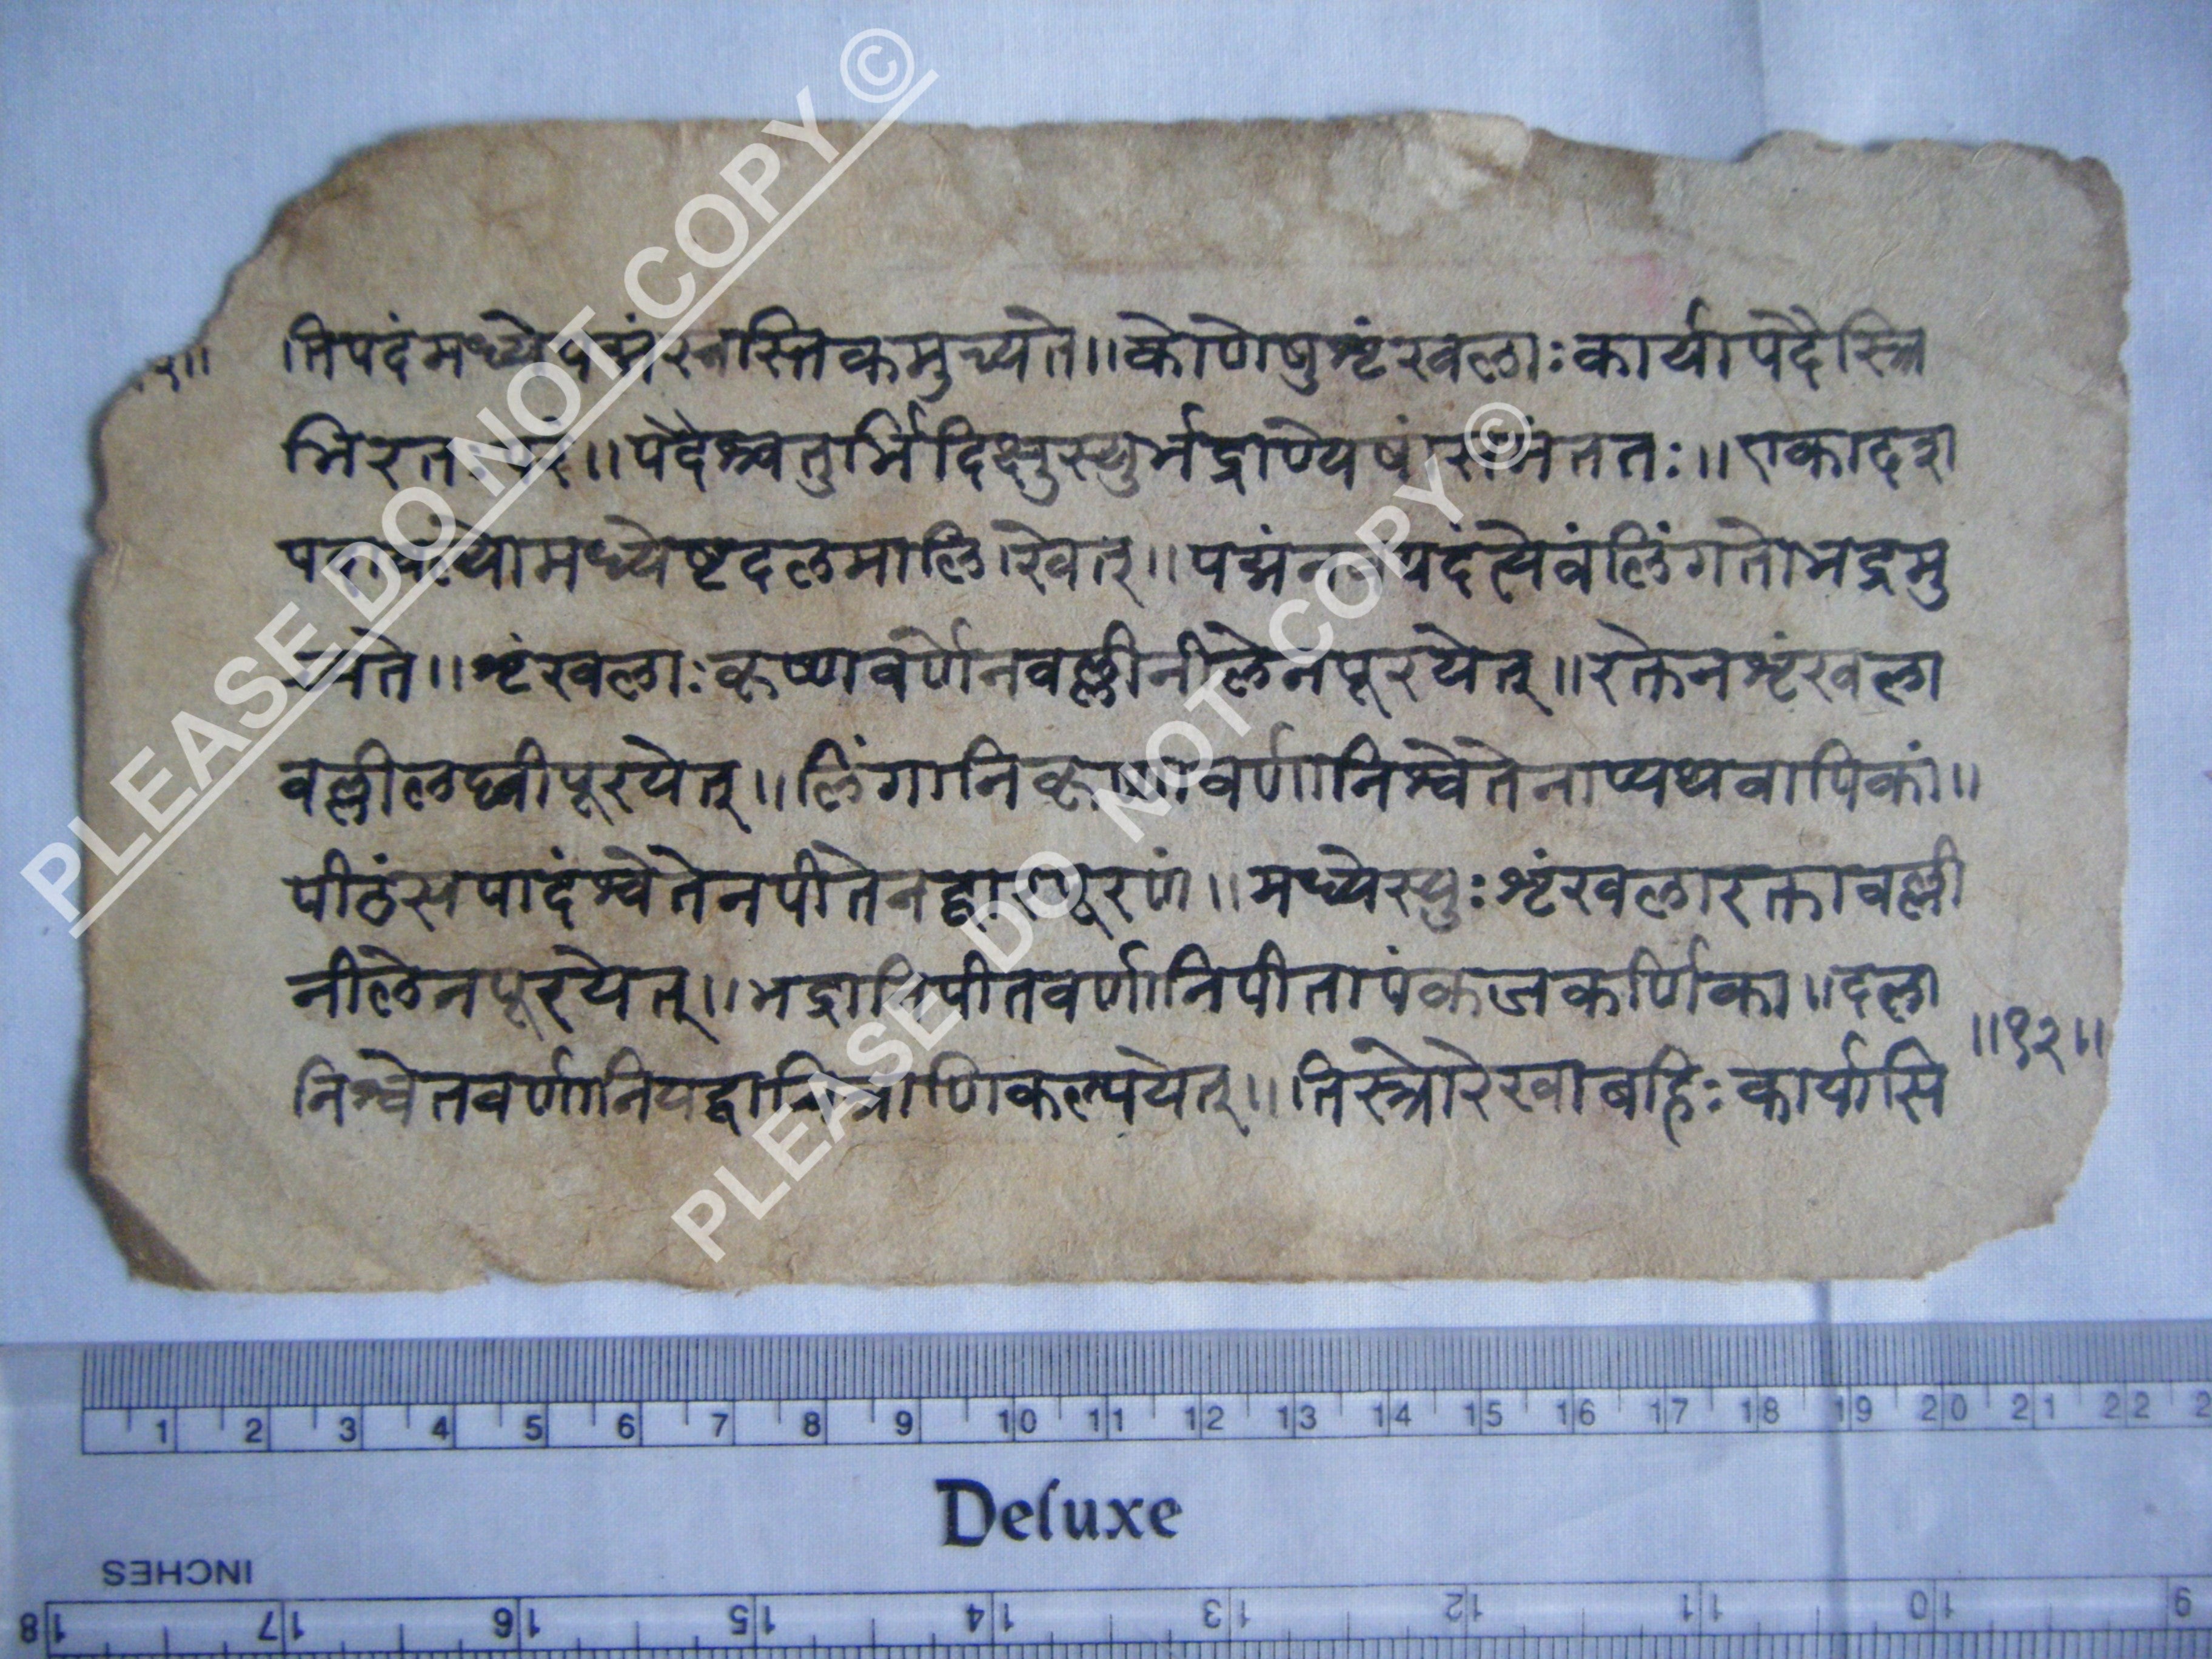 तिपदंमध्येपद्मंस्वस्तिकमुच्यते॥कोणेषुशृंखलाःकार्यापदैस्त्रि
भिरतःपरं॥पदैश्चतुर्भिर्दिक्षुस्युर्भद्राण्येषांसमंततः॥एकादश
मध्येष्टदलमालिखेत्॥पद्मंनवपदंत्येवंलिंगतोभद्रमु
च्यते॥शृंखलाःकृष्णवर्णेनवल्लीनीलेनपूरयेत्॥रक्तेनशृंखला
वल्लीलघ्वीपूरयेत्॥लिंगानिकृष्णवर्णानिश्वेतेनाप्यथवापिकां॥
पीठंसपादंश्वेतेनपीतेनद्वारपूरणं॥मध्येस्युःशृंखलारक्तावल्ली
नीलेनपूरयेत्॥भद्रानिपीतवर्णानिपीतापंकजकर्णिका॥दला
॥१२॥
निश्वेतवर्णानियद्वाचित्राणिकल्पयेत्॥तिस्त्रोरेखाबहिःकार्यासि
PLEASE DO NOT COPY ©
PLEASE DO NOT COPY ©
1 2 3 4 5 6 7 8 9 10 11 12 13 14 15 16 17 18 19 20 21 22 2
Deluxe
INCHES
18 17 16 15 14 13 12 11 10 9